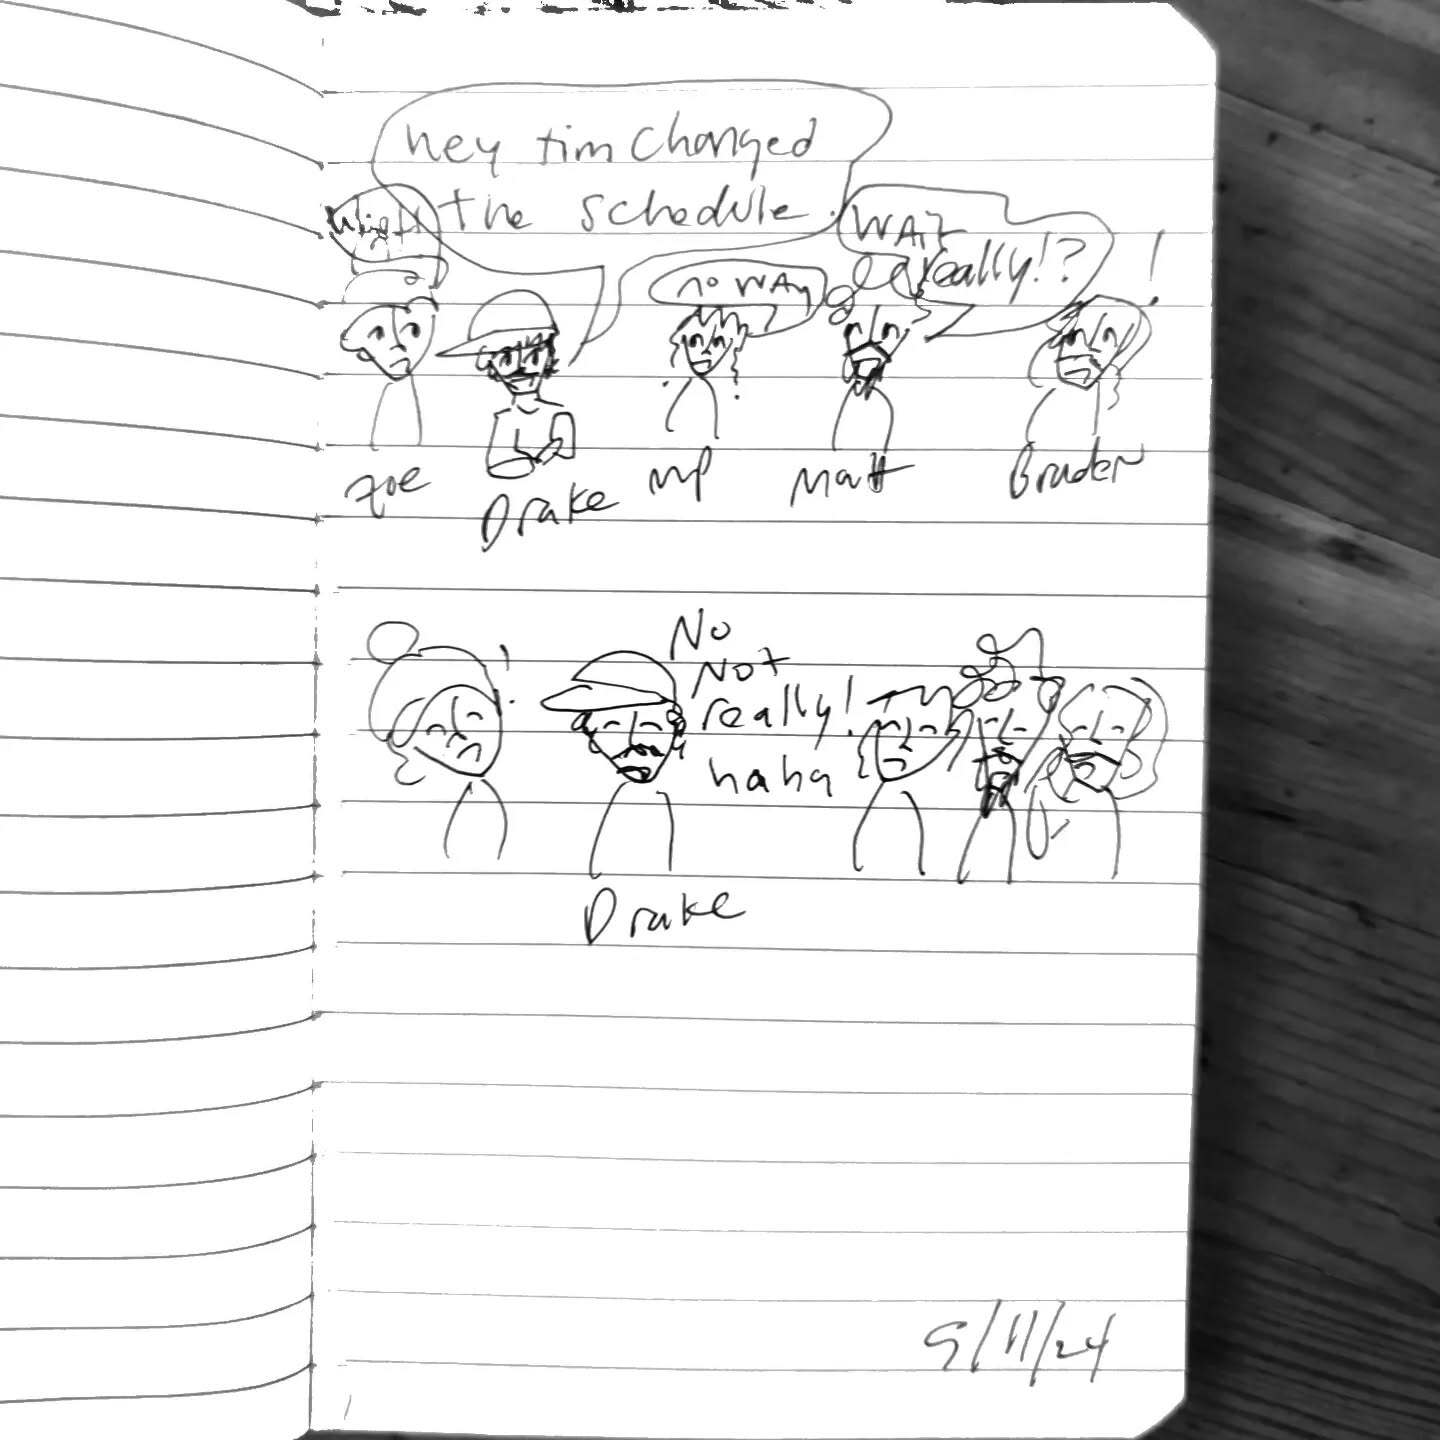 hey tim changed
the schedule.
no way
WAit
really!?
!
zoe
Drake
mp
Matt
Braden
!
No
Not
really!
haha
Drake
9/11/24